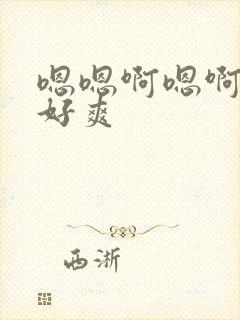 嗯嗯啊嗯啊
好爽
西淅